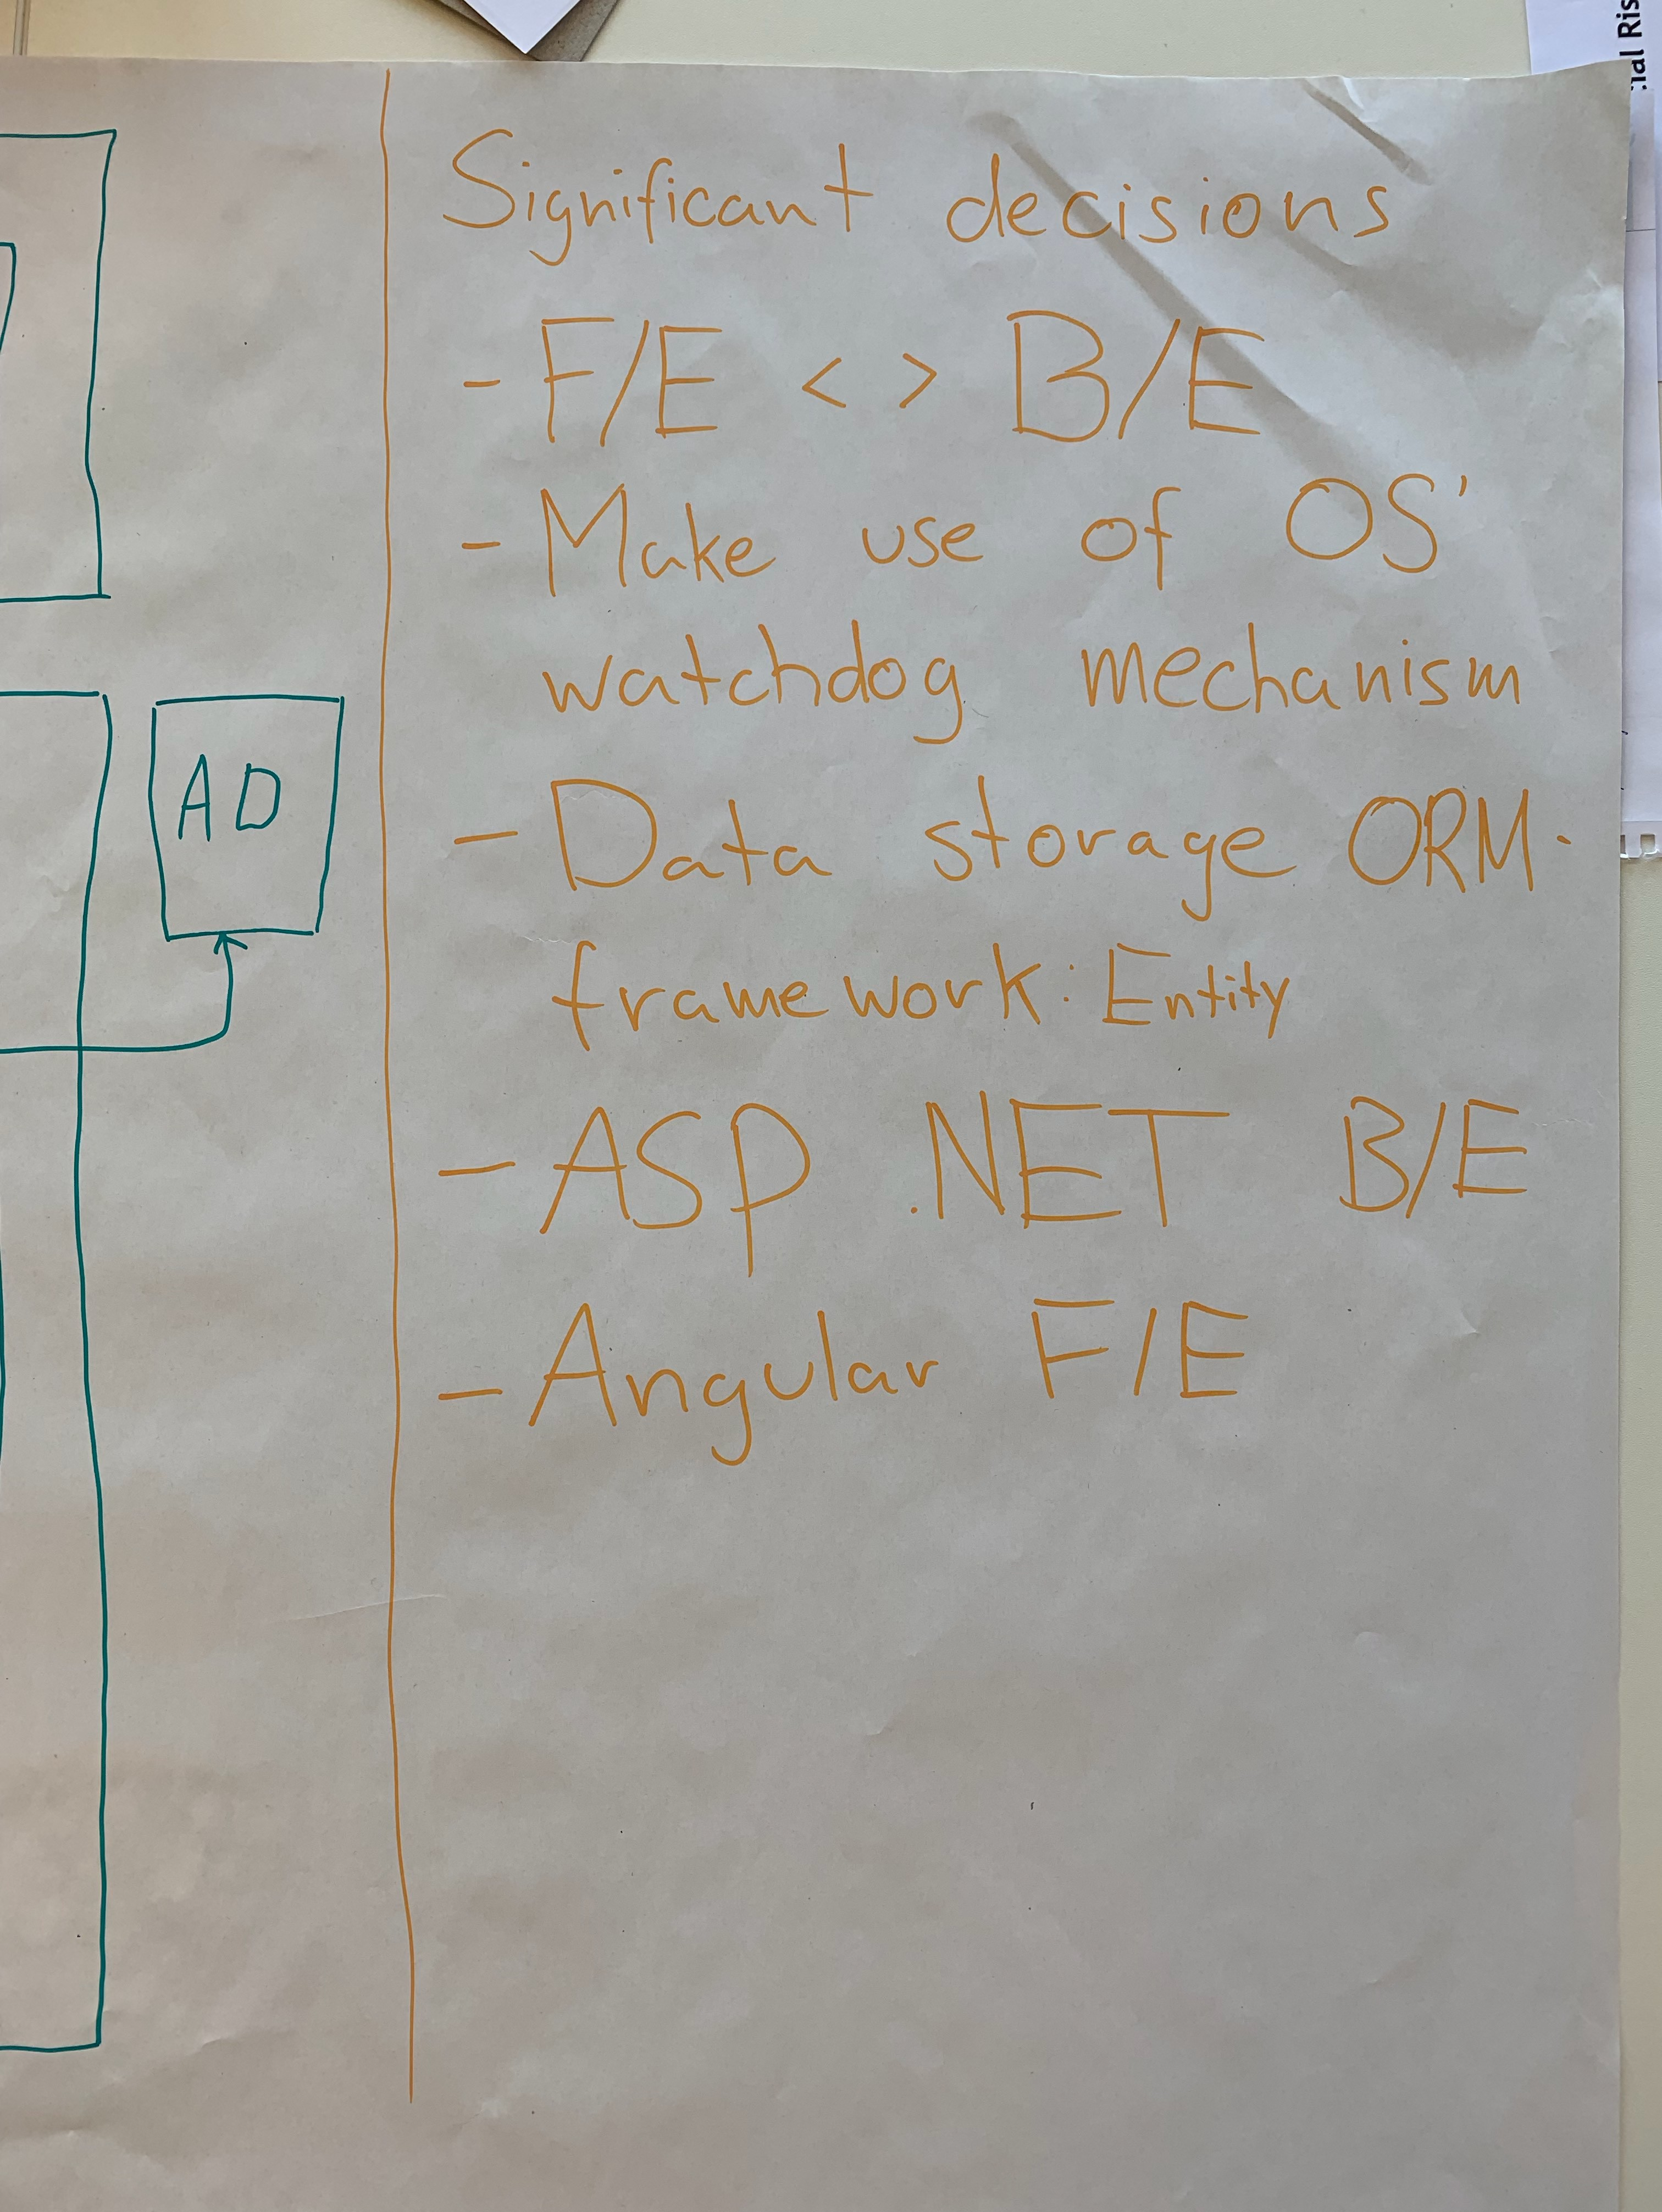 ial Ris
Significant decisions
- F/E < > B/E
- Make use of OS'
watchdog mechanism
- Data storage ORM-
framework: Entity
- ASP .NET B/E
- Angular F/E
AD